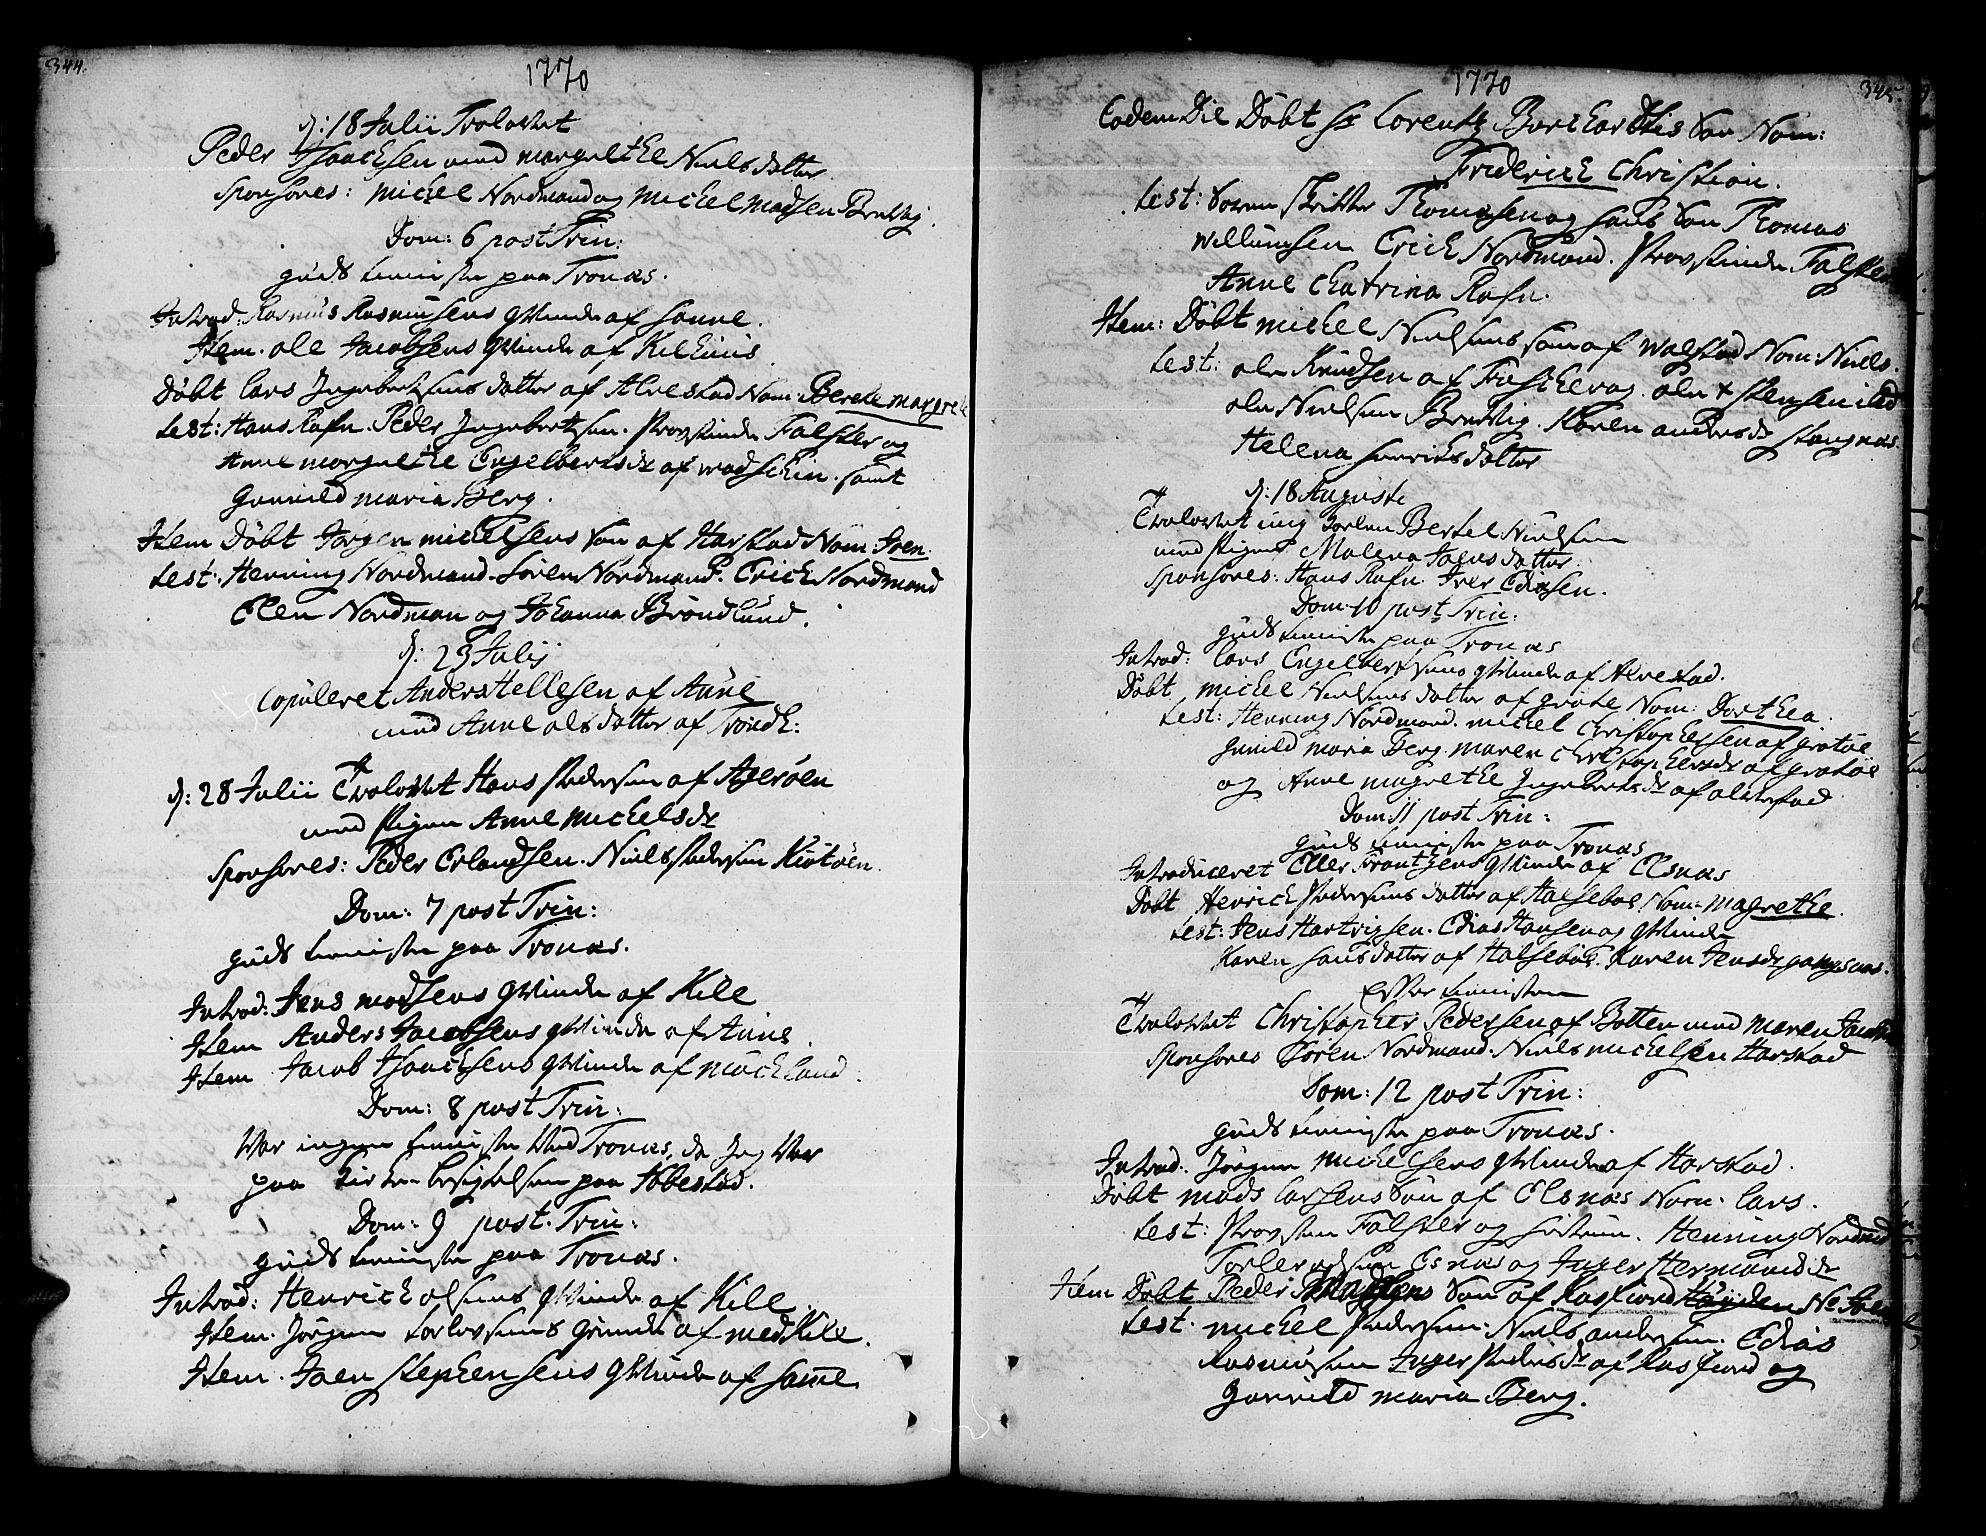 344.
1770
d: 18 Julii Trolovet
Peder Isaachsen med Margrethe Nielsdatter
Sponsores: Michel Nordmand og Michel Madsen Brevig.
Dom: 6 post Trin:
guds tieniste paa Tronæs.
Introd: Rasmus Rasmusens qvinde af Sanne.
Item. Ole Jacobsens qvinde af Kilhuus
Döbt Lars Ingebretsens datter af Alvestad Nom: Berete Margrete
Test: Hans Rafn. Peder Ingebertsen. Provstinde Falster og
Anne Margrethe Engelbertsdr af samt
Gunnild Maria Berg.
Item Döbt Jörgen Michelsens Sön af Harstad Nom Iven.
Test: Henning Nordmand. Sören Nordmand. Erich Nordmand
Elen Nordman og Johanna Bröndlund.
d: 23 Julij
Copuleret Anders Hellesen af Aüne
med Anne Olsdatter af Trondh:
d: 28 Julii Trolovet Hans Pedersen af Ageröen
med Pigen Anne Michelsdr
Sponsores: Peder Erlandsen. Niels Pedersen Kiötöen.
Dom: 7 post Trin:
guds tieniste paa Tronæs.
Introd: Jens Madsens qvinde af Kile
Item Anders Jacobsens qvinde af Aüne.
Item Jacob Isaachsens qvinde af Mochland.
Dom: 8 post Trin:
Var ingen tieniste ved Tronæs, da jeg var
paa Kirke besigtelsen paa Ibbestad.
Dom: 9 post. Trin:
guds tieniste paa Tronæs.
Introd: Henrich Olsens qvinde af Kile
Item. Jörgen Torlevsens qvinde af Medkile.
Item. Joen Stephensens qvinde af Samme
1770
345.
Eodem Die Döbt Hr Lorentz Burchardtis Sön Nom:
Friderich Christian.
Test: Thomasen og hans Sön Thomas
Willumsen Erich Nordmand. Provstinde Falster
Anne Chatrina Rafn.
Item: Döbt Michel Nielsens Sön af Walstad Nom: Niels.
Test: Ole Knudsen af Ole
Ole Nielsen Brevig. Karen Andersdr Stangnæs.
Helena Henrichsdatter
d: 18 Augusti
Trolovet ung Karlen Bertel Nielsen
med Pigen Malena datter.
Sponsores: Hans Rafn. Iver Eliasen.
Dom. 10 post Trin:
guds tieniste paa Tronæs
Introd: Lars Engelbertsens qvinde af Alvestad.
Döbt Michel Nielsens datter af Gröte Nom: Dorthea.
Test: Henning Nordmand. Michel Christophersen af Grötöe
Gunild Maria Berg. Maren Christophersdr af Grötöe
og Anne Magrethe Ingebertsdr af
Dom: 11 post Trin:
guds tieniste paa Tronæs
Introduceret Eller Frantzens qvinde af Elsnæs
Döbt Henrich Pedersens datter af Halseböe Nom: Magrethe.
Test: Jens Hartvigsen. Elias Hansen og qvinde
Karen Hansdatter af Halseböe. Karen Jensdr Gangsaas.
Efter tienisten
Trolovet Christopher Pedersen af Botten med Maren
Sponsores Sören Nordmand. Niels Michelsen Harstad
Dom: 12 post Trin:
guds tieniste paa Tronæs.
Introd: Jörgen Michelsens qvinde af Harstad.
Döbt Mads Larsens Sön af Elsnæs Nom: Lars.
Test: Provsten Falster og Henning Nordmd
Elsnæs og Inger Hermansdr
Item Döbt Peder Madsens Sön af Kasfiord
Test. Michel Pedersen. Niels Andersen. Elias
Rasmusen Inger Pedersdr af Kasfiord og
Gunnild Maria Berg.